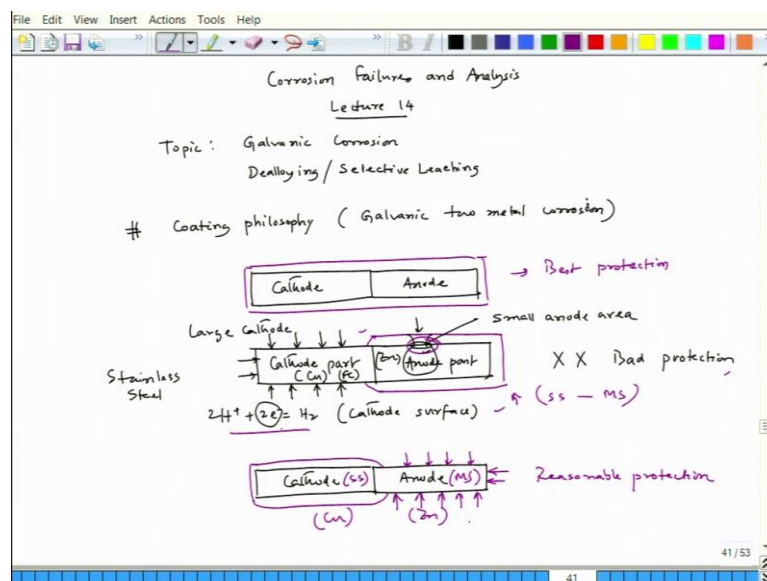 File Edit View Insert Actions Tools Help
B I
Corrosion Failures and Analysis
Lecture 14
Topic : Galvanic Corrosion
Dealloying / Selective Leaching
# Coating philosophy ( Galvanic two metal corrosion)
Cathode Anode → Best protection
Large cathode small anode area
Cathode part (Zn) Anode part X X Bad protection
(Cu) (Fe)
Stainless
Steel
2H⁺ + 2e⁻ = H₂ (Cathode surface) (SS — MS)
Cathode (SS) Anode (MS) Reasonable protection
(Cu) (Zn)
41 / 53
41